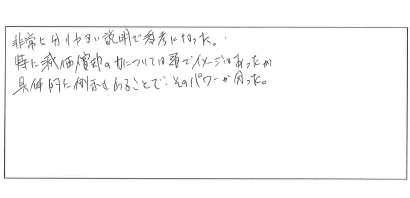 非常に分りやすい説明で参考になった。
特に減価償却の力については頭でイメージはあったが
具体的に例示もあることで、そのパワーが伺った。